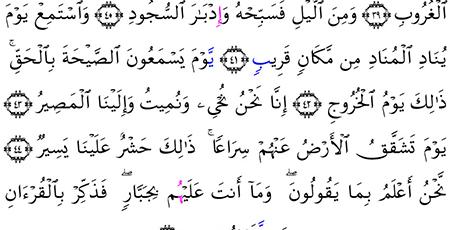 ٱلْغُرُوبِ ﴿٣٩﴾ وَمِنَ ٱلَّيْلِ فَسَبِّحْهُ وَإِدْبَـٰرَ ٱلسُّجُودِ ﴿٤٠﴾ وَٱسْتَمِعْ يَوْمَ
يُنَادِ ٱلْمُنَادِ مِن مَّكَانٖ قَرِيبٖ ﴿٤١﴾ يَّوْمَ يَسْمَعُونَ ٱلصَّيْحَةَ بِٱلْحَقِّۚ
ذَٰلِكَ يَوْمُ ٱلْخُرُوجِ ﴿٤٢﴾ إِنَّا نَحْنُ نُحْيِۦ وَنُمِيتُ وَإِلَيْنَا ٱلْمَصِيرُ ﴿٤٣﴾
يَوْمَ تَشَقَّقُ ٱلْأَرْضُ عَنْهُمْ سِرَاعٗاۚ ذَٰلِكَ حَشْرٌ عَلَيْنَا يَسِيرٞ ﴿٤٤﴾
نَّحْنُ أَعْلَمُ بِمَا يَقُولُونَۖ وَمَآ أَنتَ عَلَيْهُم بِجَبَّارٖۖ فَذَكِّرْ بِٱلْقُرْءَانِ